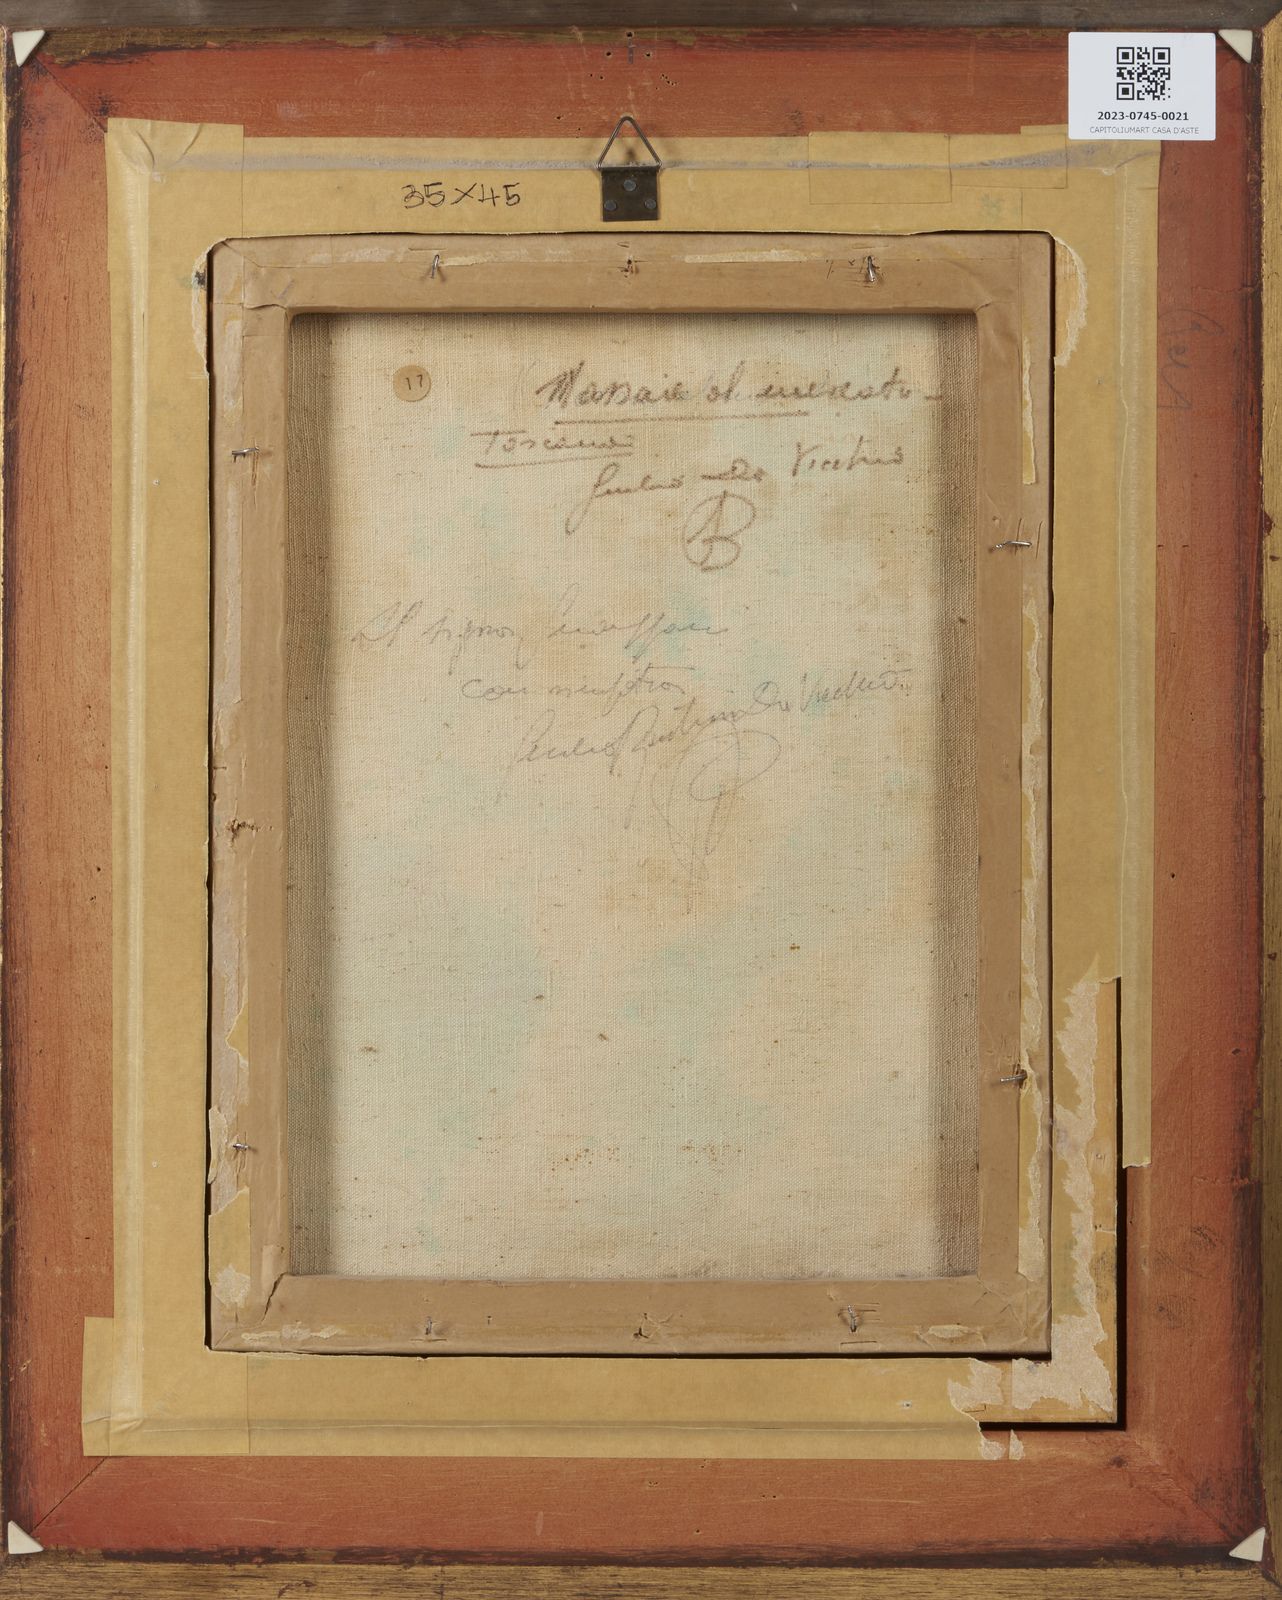 2023-0745-0021
CAPITOLIUMART CASA D'ASTE
35x45
17
Massaie al mercato -
Toscana
Giulio Da Vicchio
Al signor
con
Giulio Da Vicchio